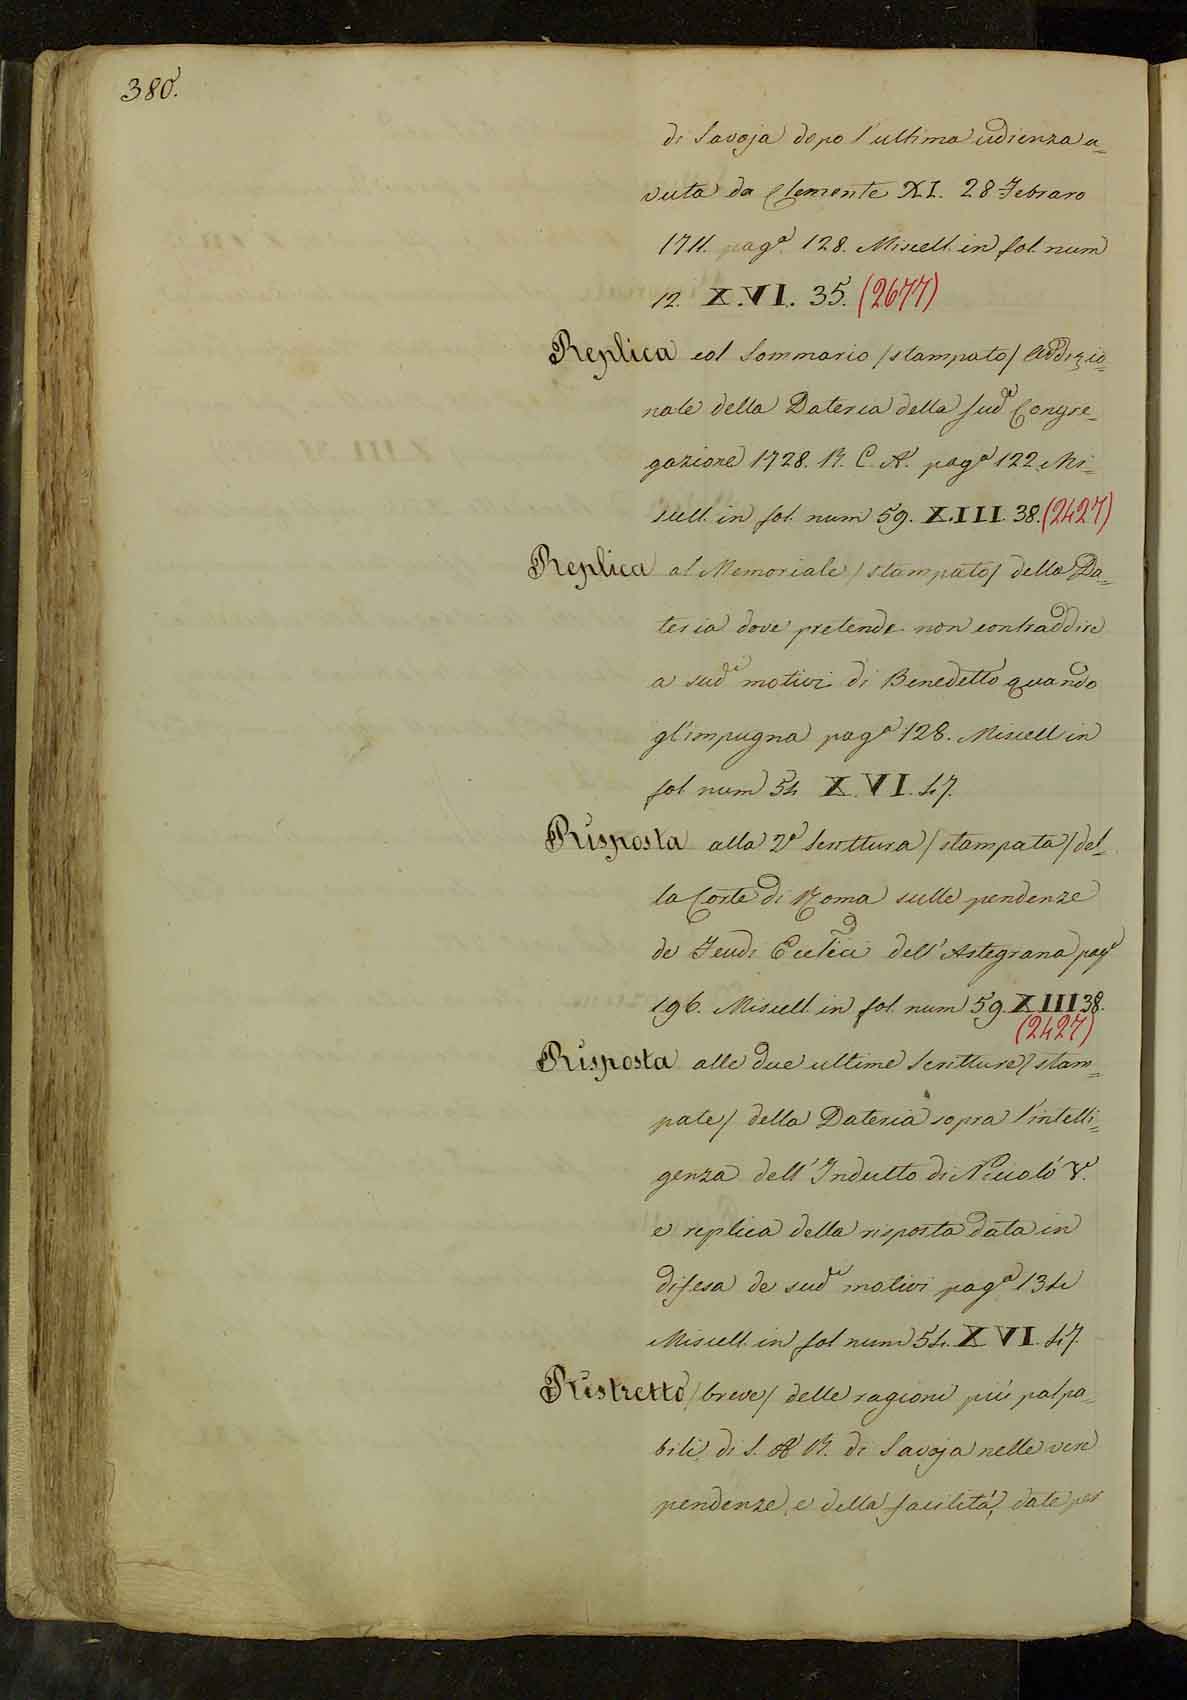 380.
di Savoja dopo l'ultima udienza a=
vuta da Clemente XI. 28 Febraro
1711. pag.ª 128. Miscell. in fol. num
12. X.VI. 35. (2677)
Replica col Sommario /stampato/ Addizio=
nale della Dateria della sud.ª Congre=
gazione 1728. R. C. A. pag.ª 122. Mi=
scell. in fol. num 59. X.III. 38. (2427)
Replica al Memoriale /stampato/ della Da=
teria dove pretende non contraddire
a sud.i motivi di Benedetto quando
gl'impugna pag.ª 128. Miscell in
fol num 54 X. VI. 47.
Risposta alla 2.ª Scrittura /stampata/ del=
la Corte di Roma sulle pendenze
de Feudi Eccl'ci dell'Astegrana pag.ª
196. Miscell. in fol. num 59. XIII 38.
(2427)
Risposta alle due ultime Scritture /stam=
pate/ della Dateria sopra l'intelli=
genza dell'Indulto di Niccolò V.
e replica della risposta data in
difesa de sud.i motivi pag.ª 134
Miscell. in fol num 54. X VI. 47.
Ristretto /breve/ delle ragioni più palpa=
bili di S. A R. di Savoja nelle vere
pendenze, e della facilità, date per